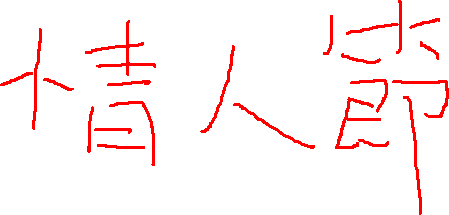 情人節